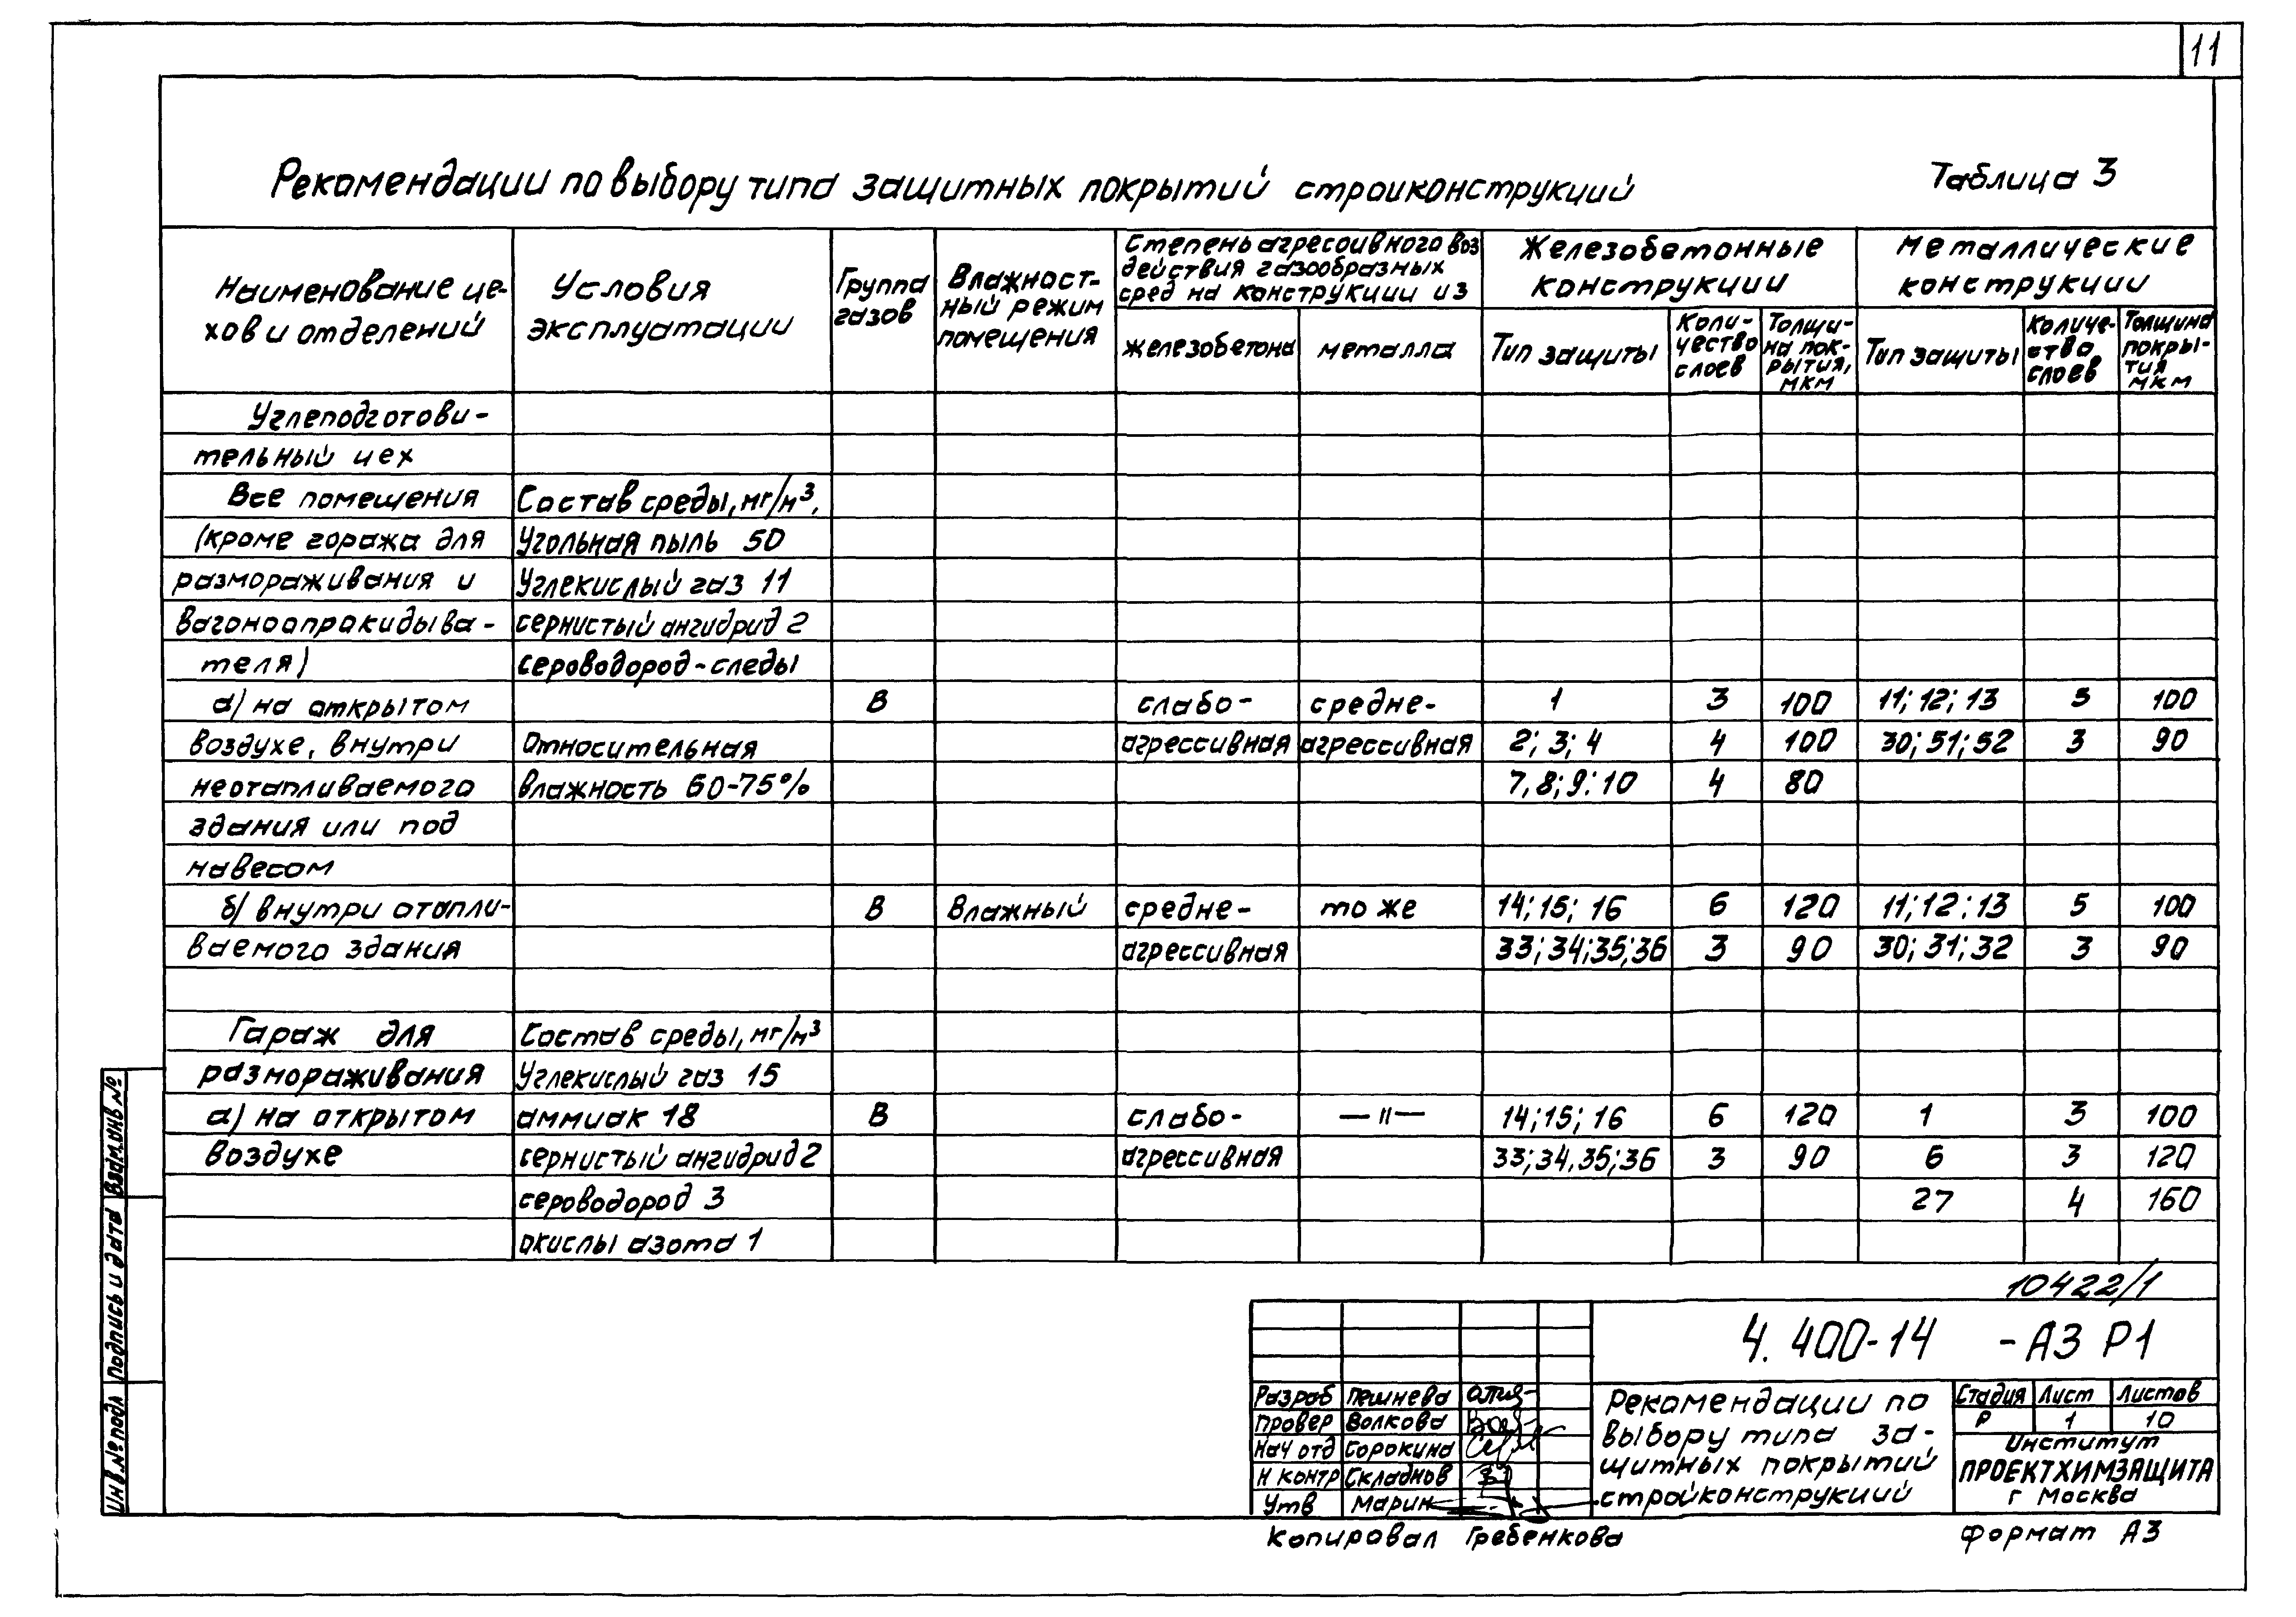 11
Рекомендации по выбору типа защитных покрытий стройконструкций
Таблица 3
Наименование це-
хов и отделений
Условия
эксплуатации
Группа
газов
Влажност-
ный режим
помещения
Степень агрессивного воз
действия газообразных
сред на конструкции из
железобетона
металла
Железобетонные
конструкции
Тип защиты
Коли-
чество
слоев
Толщи-
на пок-
рытия,
мкм
Металлические
конструкции
Тип защиты
Количе-
ство
слоев
Толщина
покры-
тия
мкм
Углеподготови-
тельный цех
Все помещения Состав среды, мг/м³,
(кроме гаража для Угольная пыль 50
размораживания и Углекислый газ 11
вагоноопрокидыва- сернистый ангидрид 2
теля) сероводород-следы
а) на открытом В слабо- средне- 1 3 100 11; 12; 13 5 100
воздухе, внутри Относительная агрессивная агрессивная 2; 3; 4 4 100 30; 51; 52 3 90
неотапливаемого влажность 60-75% 7, 8; 9: 10 4 80
здания или под
навесом
б) внутри отапли- В Влажный средне- то же 14; 15; 16 6 120 11; 12; 13 5 100
ваемого здания агрессивная 33; 34; 35; 36 3 90 30; 31; 32 3 90
Гараж для Состав среды, мг/м³
размораживания Углекислый газ 15
а) на открытом аммиак 18 В слабо- —"— 14; 15; 16 6 120 1 3 100
воздухе сернистый ангидрид 2 агрессивная 33; 34, 35; 36 3 90 6 3 120
сероводород 3 27 4 160
окислы азота 1
10422/1
4.400-14 -А3 Р1
Разраб Пешнева
Провер Волкова
Нач отд Сорокина
Н контр Складнов
Утв Марин
Рекомендации по
выбору типа за-
щитных покрытий
стройконструкций
Стадия Лист Листов
Р 1 10
Институт
ПРОЕКТХИМЗАЩИТА
г Москва
Копировал Гребенкова
Формат А3
Взам.инв №
Подпись и дата
Инв.№ подл